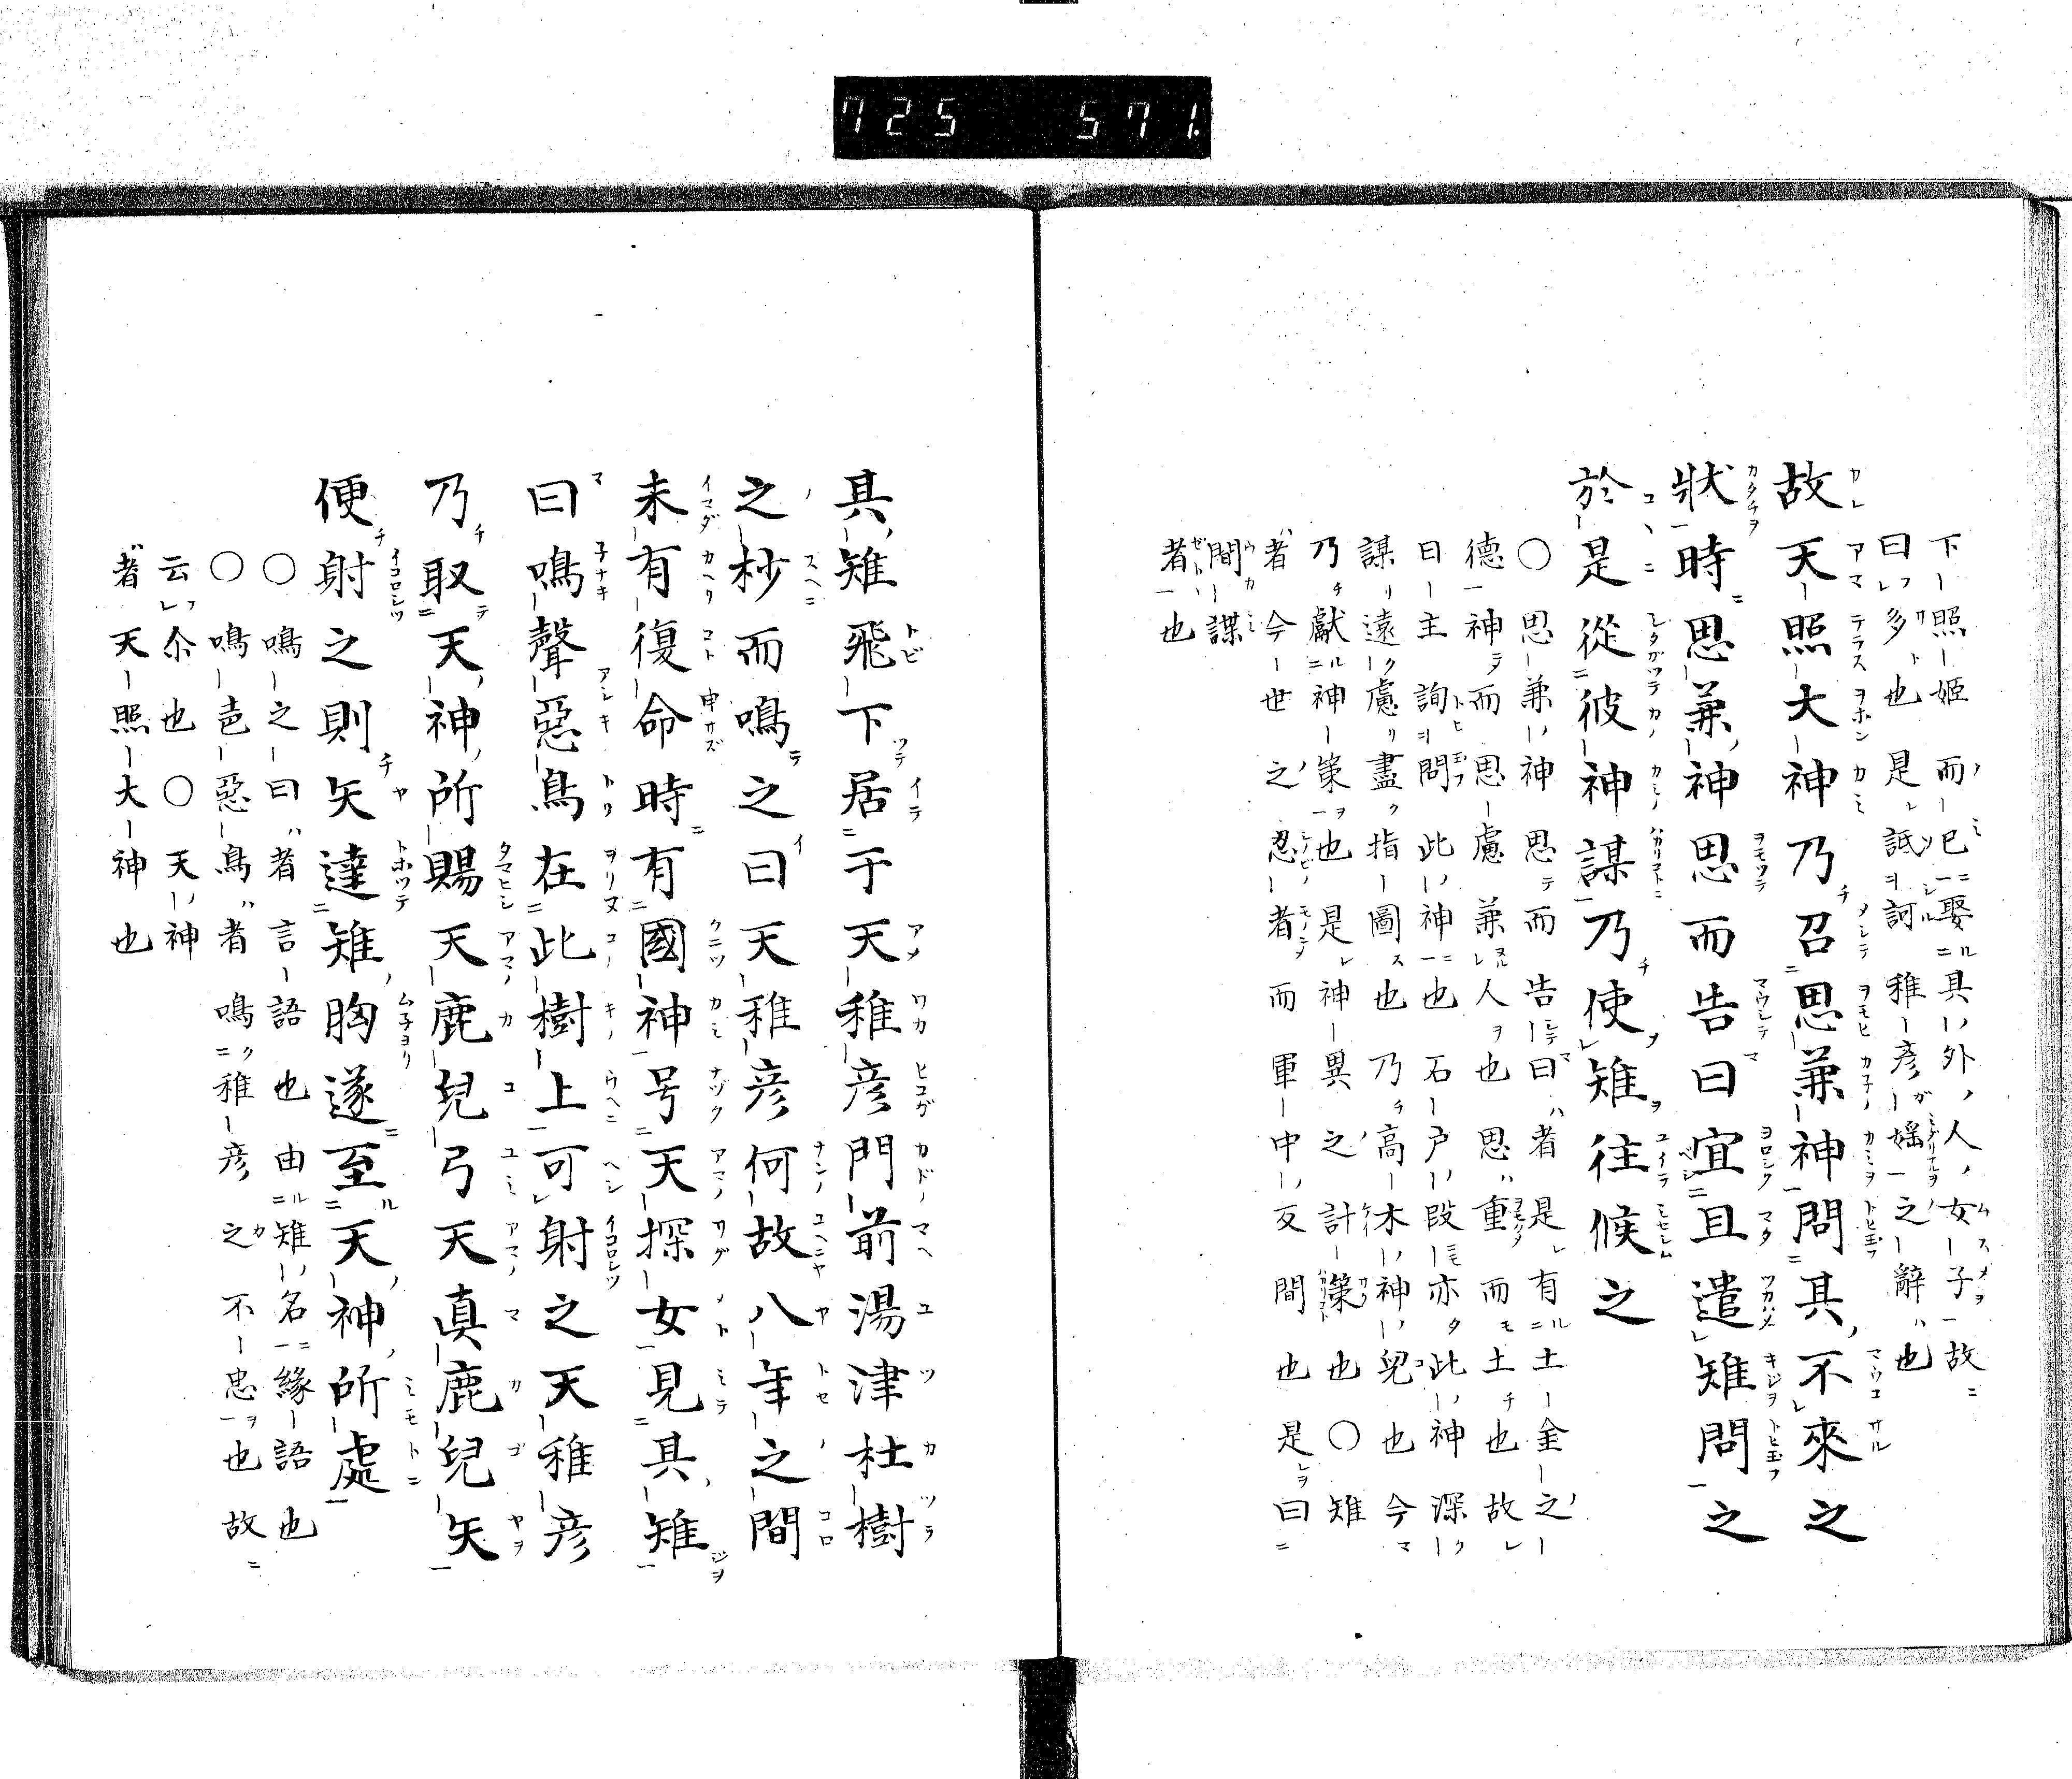 725 571.
下照姫而已娶其外人女子故
曰多也是詆訶稚彦婬之辭也
故天照大神乃召思兼神問其不來之
狀時思兼神思而告曰宜且遣雉問之
於是從彼神謀乃使雉往候之
○思兼神思而告曰者是有土金之
德神而思慮兼人也思重而土也故
曰主詢問此神也石戸段亦此神深
謀遠慮盡指圖也乃高木神兒也今
乃獻神策也是神異之計策也○雉
者今世之忍者而軍中反間也是曰
間諜
者也
其雉飛下居于天稚彦門前湯津杜樹
之杪而鳴之曰天稚彦何故八年之間
未有復命時有國神号天探女見其雉
曰鳴聲惡鳥在此樹上可射之天稚彦
乃取天神所賜天鹿兒弓天真鹿兒矢
便射之則矢達雉胸遂至天神所處
○鳴之曰者言語也由雉名縁語也
○鳴声惡鳥者鳴稚彦之不忠也故
云尒也○天神
者天照大神也